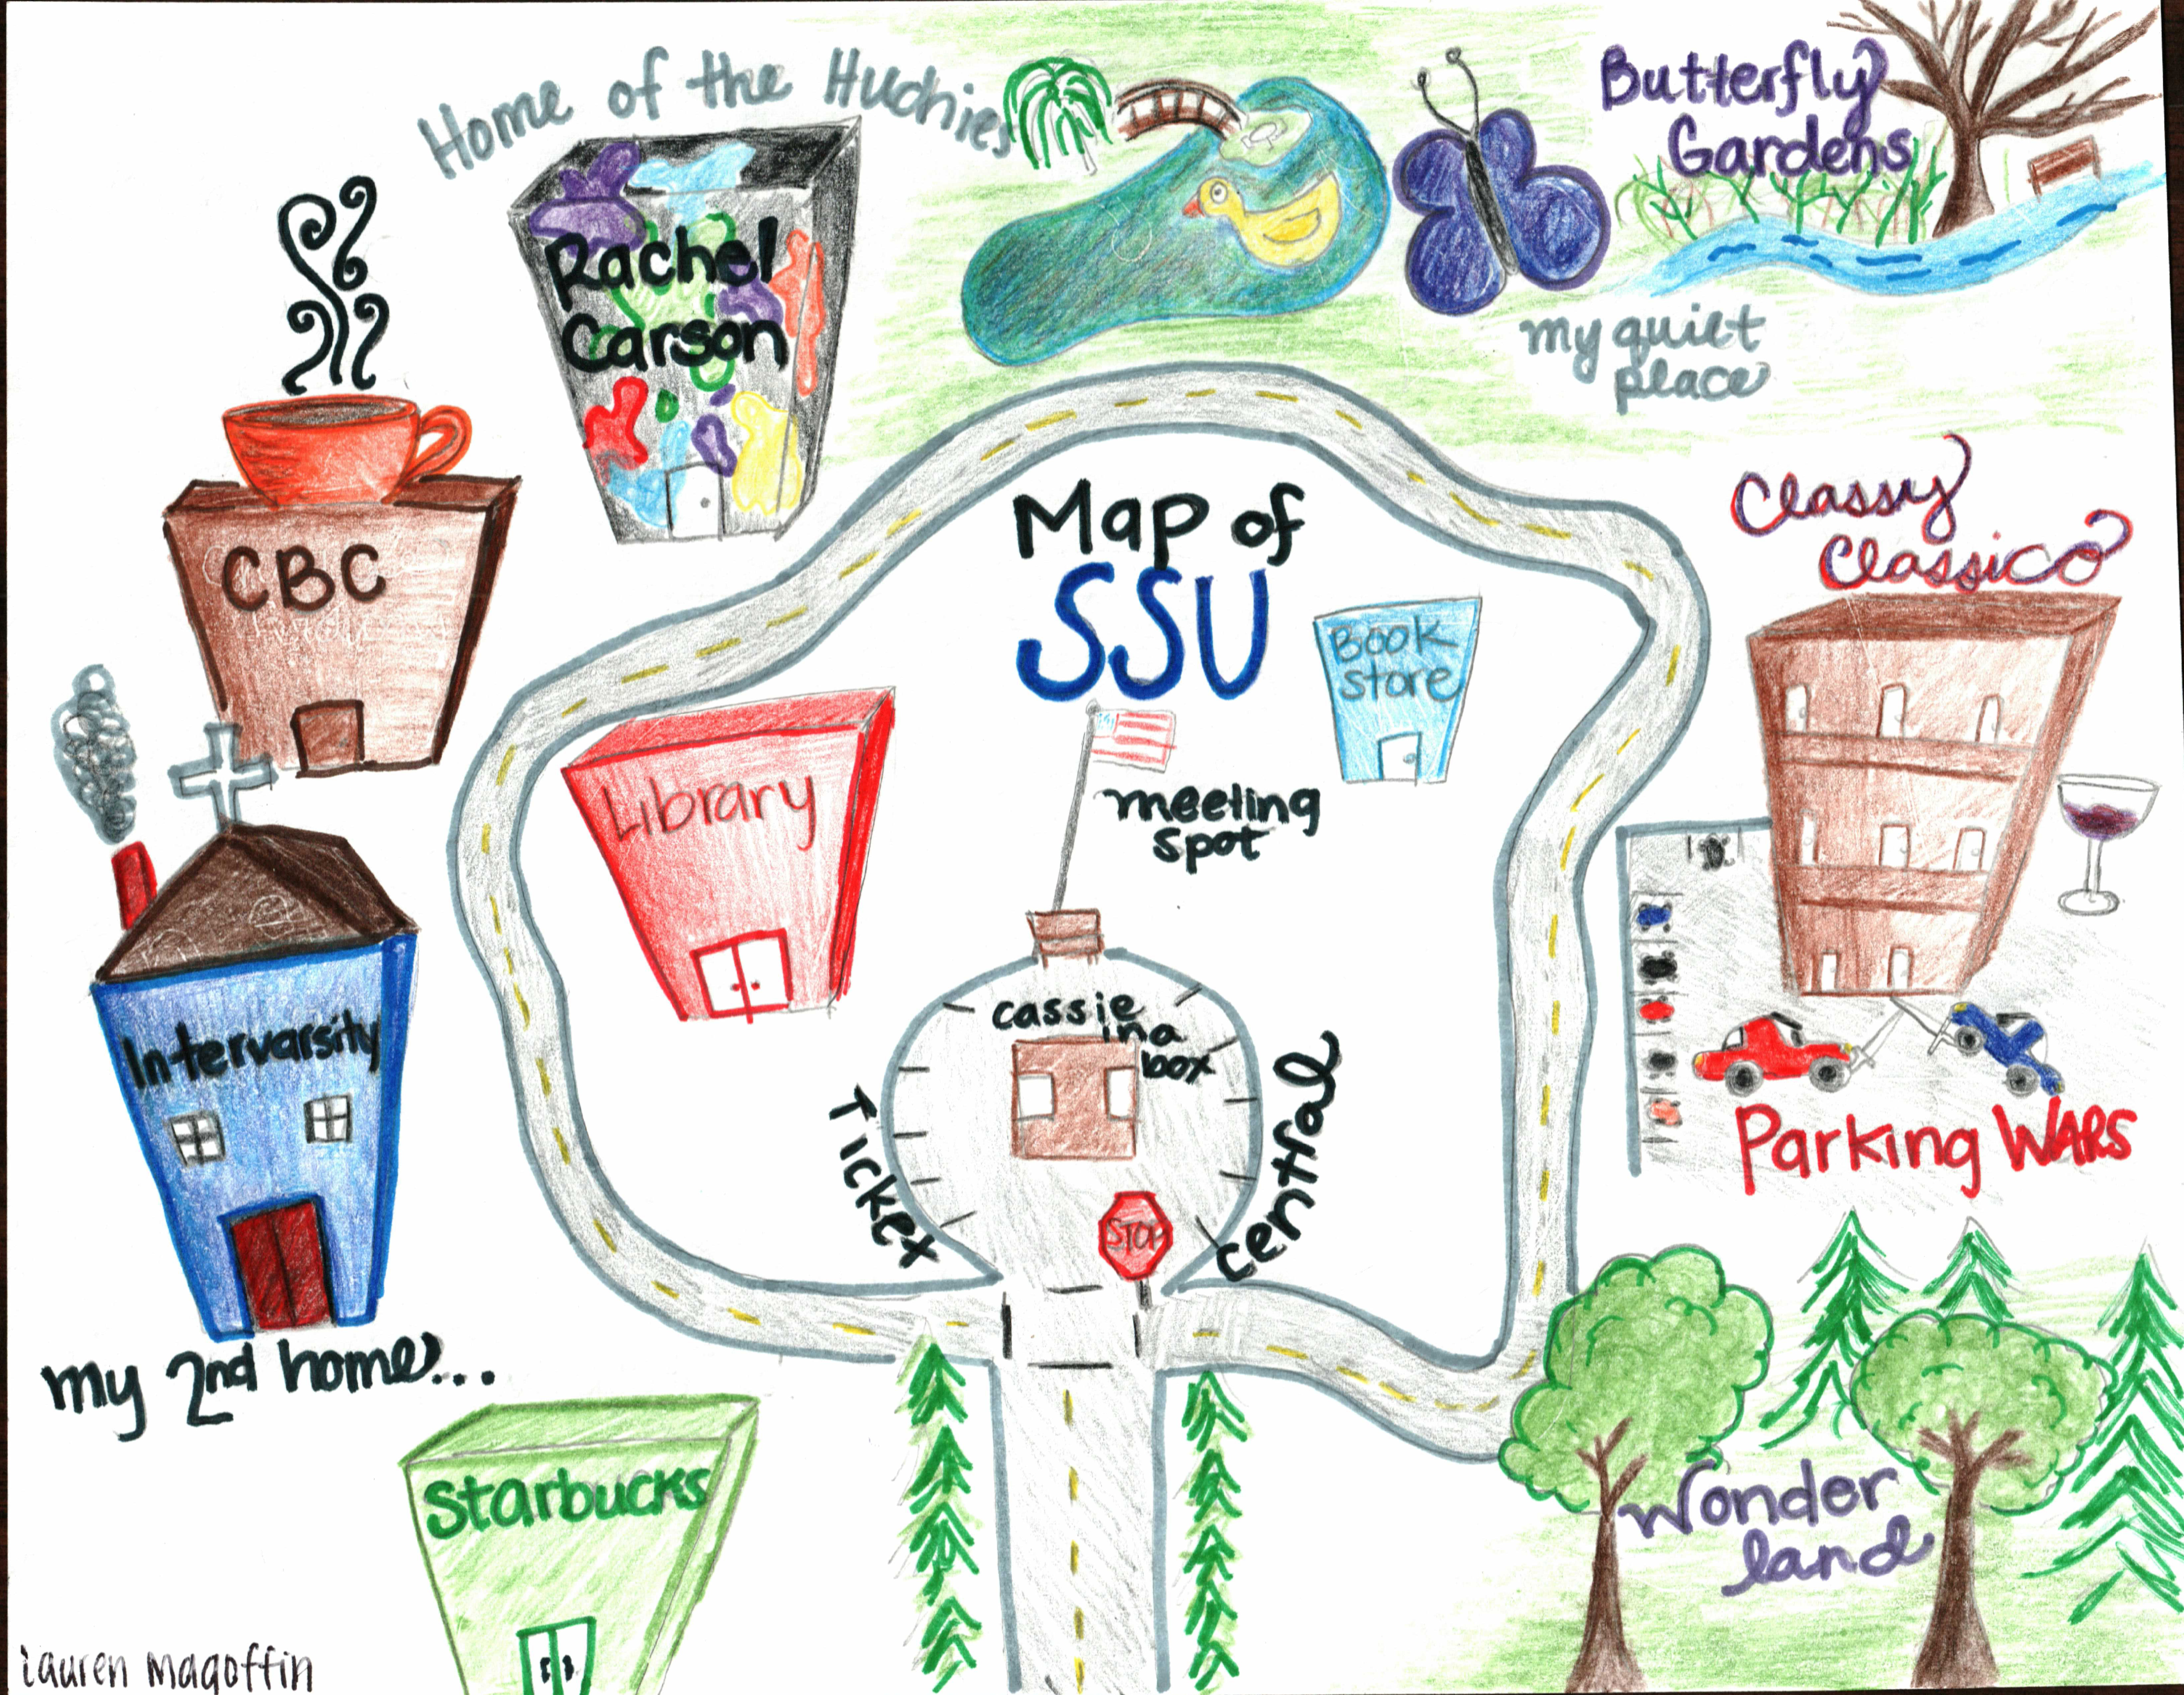 Home of the Huchies
Butterfly
Gardens
Rachel
Carson
my quiet
place
Classy
Classico
Map of
SSU
CBC
Book
store
Library
meeting
spot
cassie
in a
box
Intervarsity
Ticket
central
STOP
Parking WARS
my 2nd home...
Starbucks
Wonder
land
Lauren Magoffin